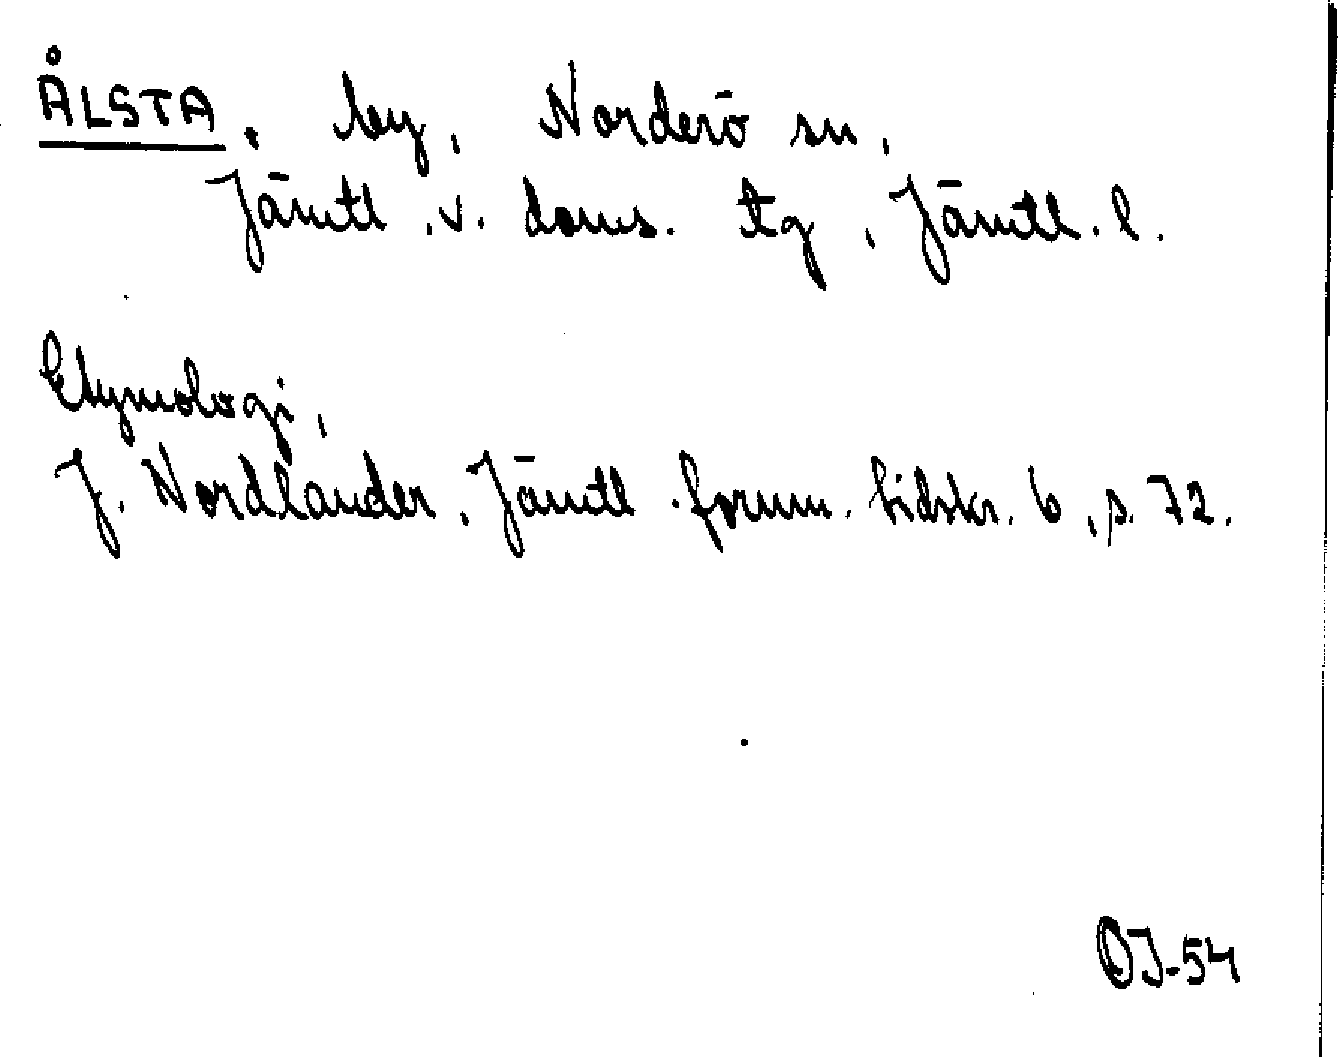 ÅLSTA, by, Norderö sn,
Jämtl. v. doms. tg, Jämtl. l.
Etymologi,
J. Nordlander, Jämtl. fornm. tidskr. 6, s. 72.
OJ-54